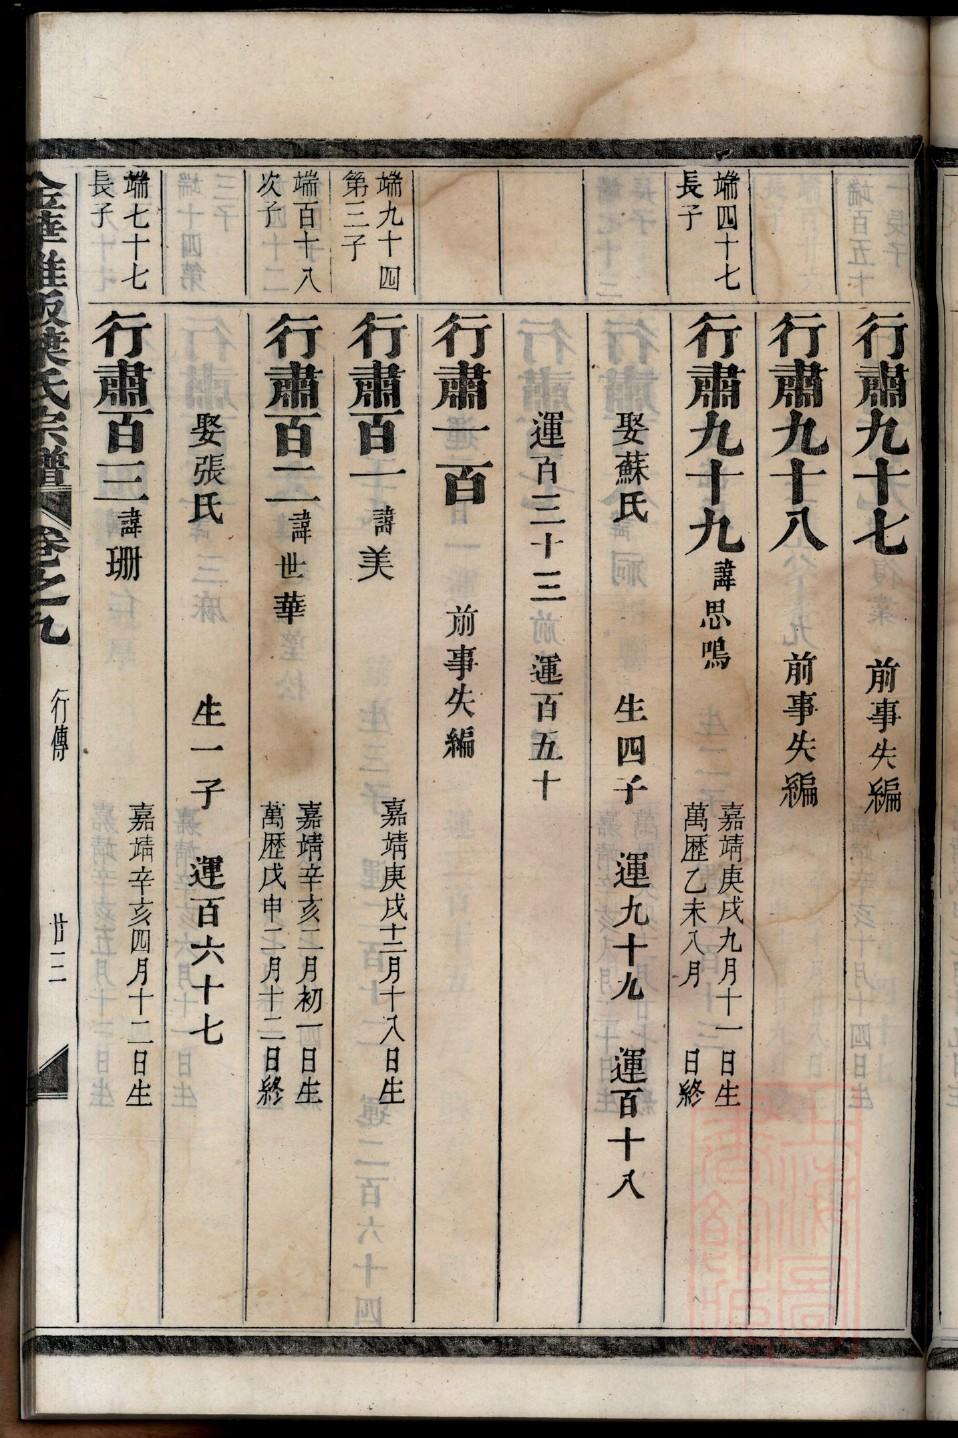 行肅九十七
前事失編
行肅九十八
前事失編
端四十七
長子
行肅九十九 諱思鳴
嘉靖庚戌九月十一日生
萬歷乙未八月 日終
娶蘇氏 生四子 運九十九 運百十八
運百三十三 運百五十
行肅一百
前事失編
端九十四
第三子
行肅百一 諱美
嘉靖庚戌十二月十八日生
端百十八
次子
行肅百二 諱世華
嘉靖辛亥二月初一日生
萬歷戊申二月十二日終
娶張氏 生一子 運百六十七
端七十七
長子
行肅百三 諱珊
嘉靖辛亥四月十二日生
金華 葉氏宗譜 卷之九 行傳 廿三